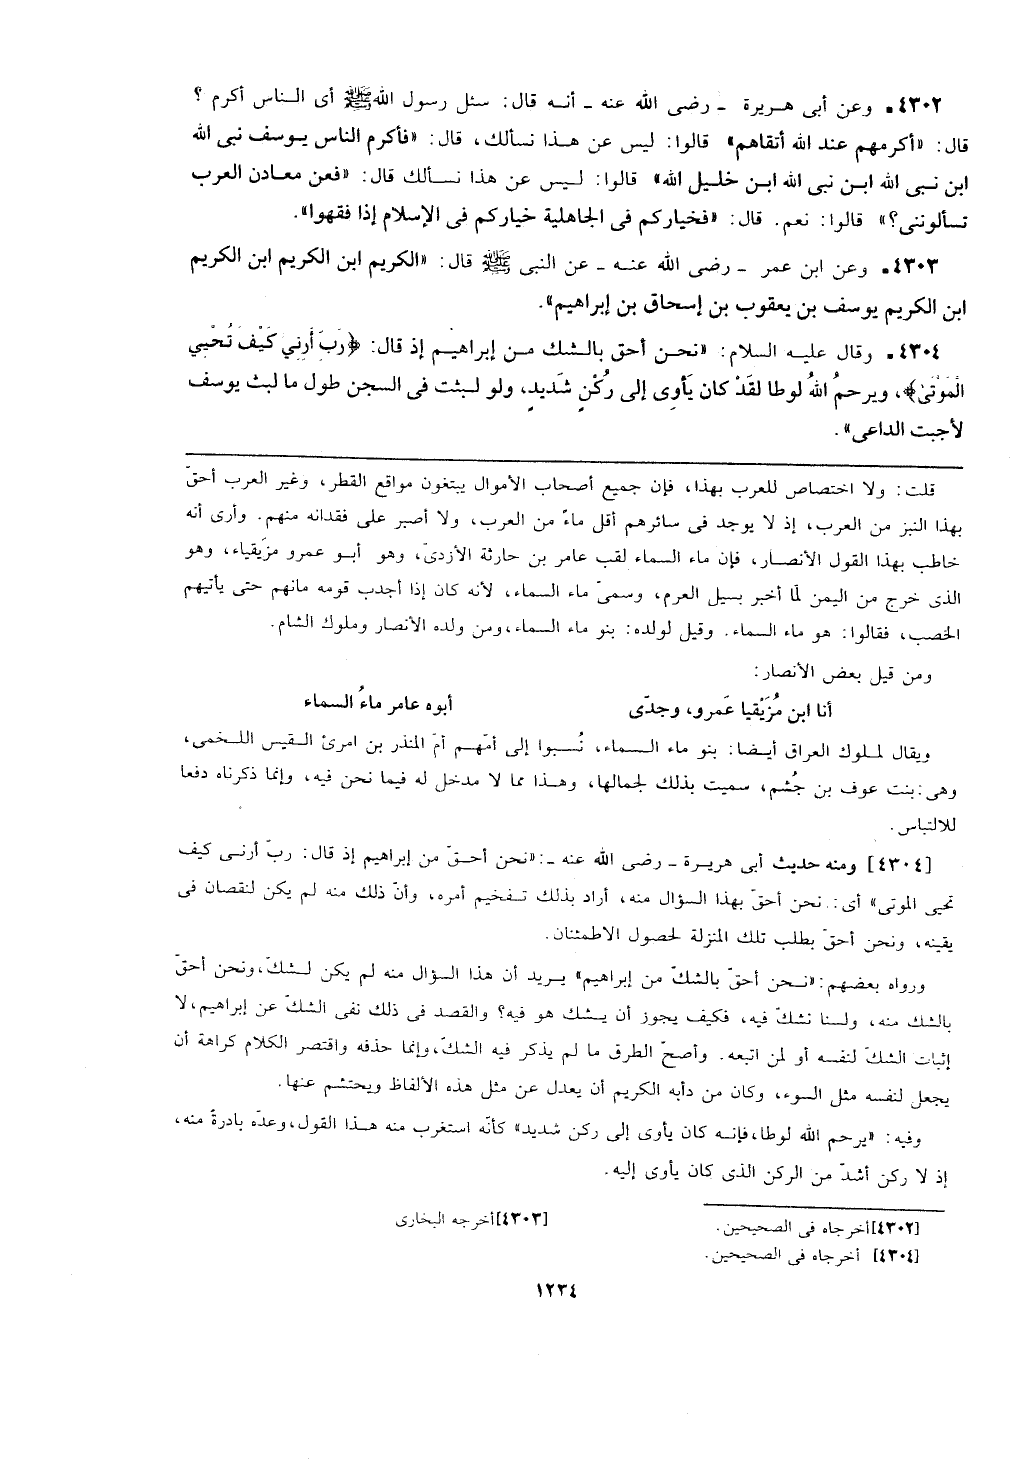 ٤٣٠٢. وعن أبى هريرة - رضى الله عنه - أنه قال: سئل رسول الله ﷺ أى الناس أكرم ؟
قال: «أكرمهم عند الله أتقاهم» قالوا: ليس عن هذا نسألك، قال: «فأكرم الناس يوسف نبى الله
ابن نبى الله ابن نبى الله ابن خليل الله» قالوا: ليس عن هذا نسألك قال: «فعن معادن العرب
تسألوننى؟» قالوا: نعم. قال: «فخياركم فى الجاهلية خياركم فى الإسلام إذا فقهوا».
٤٣٠٣. وعن ابن عمر - رضى الله عنه - عن النبى ﷺ قال: «الكريم ابن الكريم ابن الكريم
ابن الكريم يوسف بن يعقوب بن إسحاق بن إبراهيم».
٤٣٠٤. وقال عليه السلام: «نحن أحق بالشك من إبراهيم إذ قال: ﴿رَبِّ أَرِنِي كَيْفَ تُحْيِي
الْمَوْتَىٰ﴾، ويرحمُ اللهُ لوطا لقَدْ كان يَأوِى إلى رُكْنٍ شَديدٍ، ولو لبثت فى السجن طول ما لبث يوسف
لأجبت الداعى».
قلت: ولا اختصاص للعرب بهذا، فإن جميع أصحاب الأموال يبتغون مواقع القطر، وغير العرب أحقّ
بهذا النبز من العرب، إذ لا يوجد فى سائرهم أقل ماءً من العرب، ولا أصبر على فقدانه منهم. وأرى أنه
خاطب بهذا القول الأنصار، فإن ماء السماء لقب عامر بن حارثة الأزدىّ، وهو أبو عمرو مزيقياء، وهو
الذى خرج من اليمن لمّا أخبر بسيل العرم، وسمىّ ماء السماء، لأنه كان إذا أجدب قومه مانهم حتى يأتيهم
الخصب، فقالوا: هو ماء السماء. وقيل لولده: بنو ماء السماء، ومن ولده الأنصار وملوك الشام.
ومن قيل بعض الأنصار:
أنا ابن مُزَيْقيا عَمرو، وجدّى أبوه عامر ماءُ السماء
ويقال لملوك العراق أيضا: بنو ماء السماء، نُسبوا إلى أمّهم أمّ المنذر بن امرئ القيس اللخمى،
وهى: بنت عوف بن جُشم، سميت بذلك لجمالها، وهذا مما لا مدخل له فيما نحن فيه، وإنما ذكرناه دفعا
للالتباس.
[٤٣٠٤] ومنه حديث أبى هريرة - رضى الله عنه -: «نحن أحقّ من إبراهيم إذ قال: ربّ أرنى كيف
تحيى الموتى» أى: نحن أحقّ بهذا السؤال منه، أراد بذلك تفخيم أمره، وأنّ ذلك منه لم يكن لنقصان فى
يقينه، ونحن أحقّ بطلب تلك المنزلة لحصول الاطمئنان.
ورواه بعضهم: «نحن أحقّ بالشكّ من إبراهيم» يريد أن هذا السؤال منه لم يكن لشكّ، ونحن أحقّ
بالشك منه، ولسنا نشكّ فيه، فكيف يجوز أن يشك هو فيه؟ والقصد فى ذلك نفى الشكّ عن إبراهيم، لا
إثبات الشكّ لنفسه أو لمن اتبعه. وأصحّ الطرق ما لم يذكر فيه الشكّ، وإنما حذفه واقتصر الكلام كراهة أن
يجعل لنفسه مثل السوء، وكان من دأبه الكريم أن يعدل عن مثل هذه الألفاظ ويحتشم عنها.
وفيه: «يرحم الله لوطا، فإنه كان يأوى إلى ركن شديد» كأنّه استغرب منه هذا القول، وعدّه بادرةً منه،
إذ لا ركن أشدّ من الركن الذى كان يأوى إليه.
[٤٣٠٢] أخرجاه فى الصحيحين. [٤٣٠٣] أخرجه البخارى
[٤٣٠٤] أخرجاه فى الصحيحين.
١٢٣٤